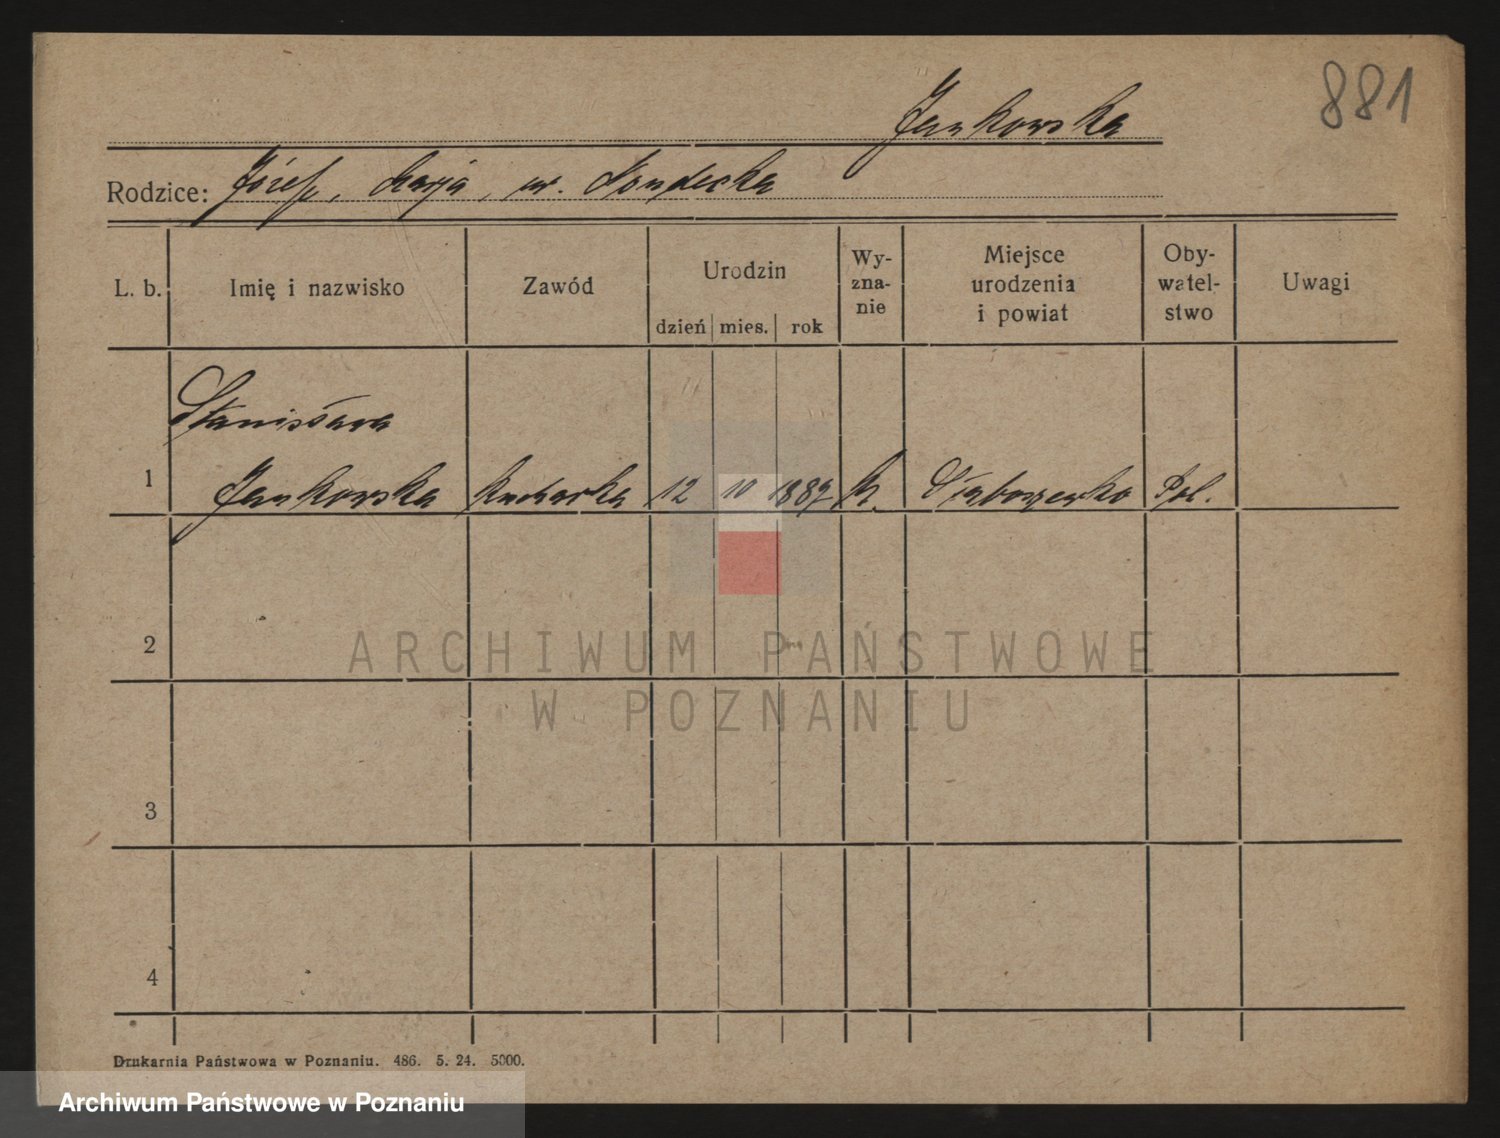 881
Jankowska
Rodzice: Józef, Marja, ur.
L. b. Imię i nazwisko Zawód Urodzin dzień mies. rok Wy-zna-nie Miejsce urodzenia i powiat Oby-watel-stwo Uwagi
Stanisława
1 Jankowska Kucharka 12 10 1889 K. Pol.
2
3
4
ARCHIWUM PAŃSTWOWE
W POZNANIU
Drukarnia Państwowa w Poznaniu. 486. 5. 24. 5000.
Archiwum Państwowe w Poznaniu